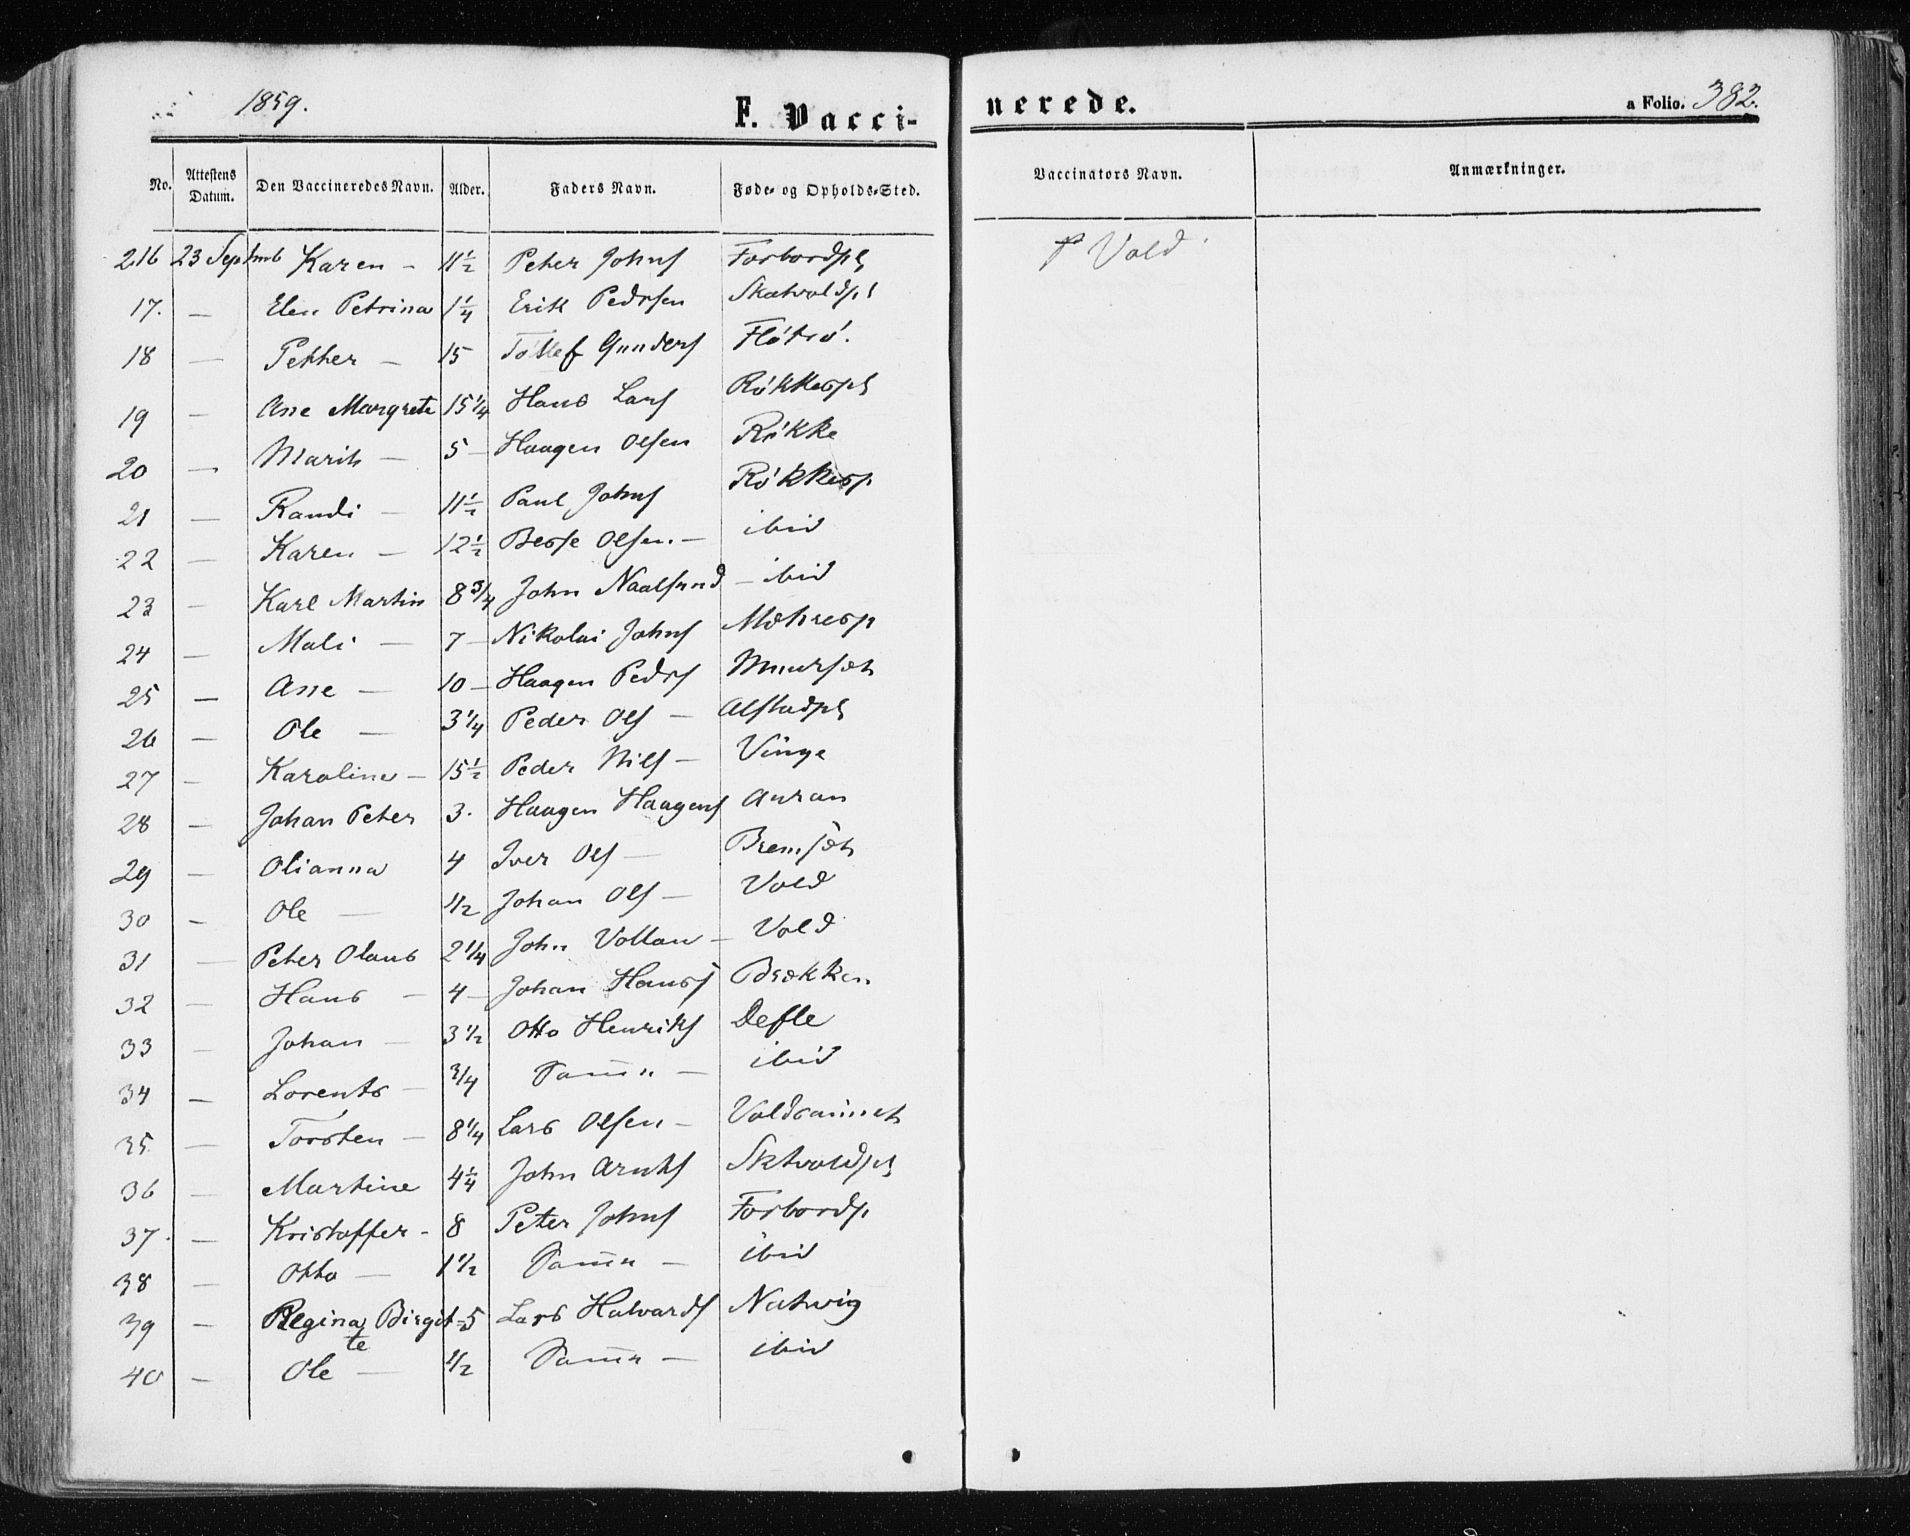 1859.
F. Vacci-
nerede.
a Folio. 382.
No. Attestens Datum. Den Vaccineredes Navn. Alder. Faders Navn. Føde- og Opholds-Sted. Vaccinators Navn. Anmærkninger.
216 23 Septemb Karen - 11½ Peter Johns Forbordpl P Vold
17. — Elen Petrina 1¼ Erik Pedersen Skatvoldpl
18 — Petter — 15 Tøllef Gunders Fløtrø.
19 — Ane Margrete 15¼ Hans Lars Røkkespl
20 — Marit — 5 — Haagen Olsen Røkke
21 — Randi — 11½ Paul Johns Røkkesp
22 — Karen — 12½ Besse Olsen. — ibid
23 — Karl Martin 8¾ John Naalsund — ibid
24 — Mali — 7 — Nikolai Johns Mæhresp
25 — Ane — 10 — Haagen Peders
26 — Ole — 3¼ Peder Ols — Alstadpl
27 — Karoline — 15½ Peder Nils — Vinge
28 — Johan Peter 3. Haagen Haagens Auran
29 — Olianna 4 Iver Ols — Bremsæt
30 — Ole — ½ Johan Ols — Vold
31 — Peter Olaus 2¼ John Vollan — Vold
32 — Hans — 4 — Johan Hans Brækken
33 — Johan — 3½ Otto Henriks Defle
34 — Lorents — ¾ Samm — ibid
35 — Torsten — 8¼ Lars Olsen —
36 — Martine 4¼ John Arnts Sktvoldpl
37. — Kristoffer - 8 Peter Johns Forbordp
38 — Otto — 1½ Samm — ibid
39 — Regina Birgit- 5 Lars Halvards Natwig
te
40 — Ole — ½ Samm — ibid